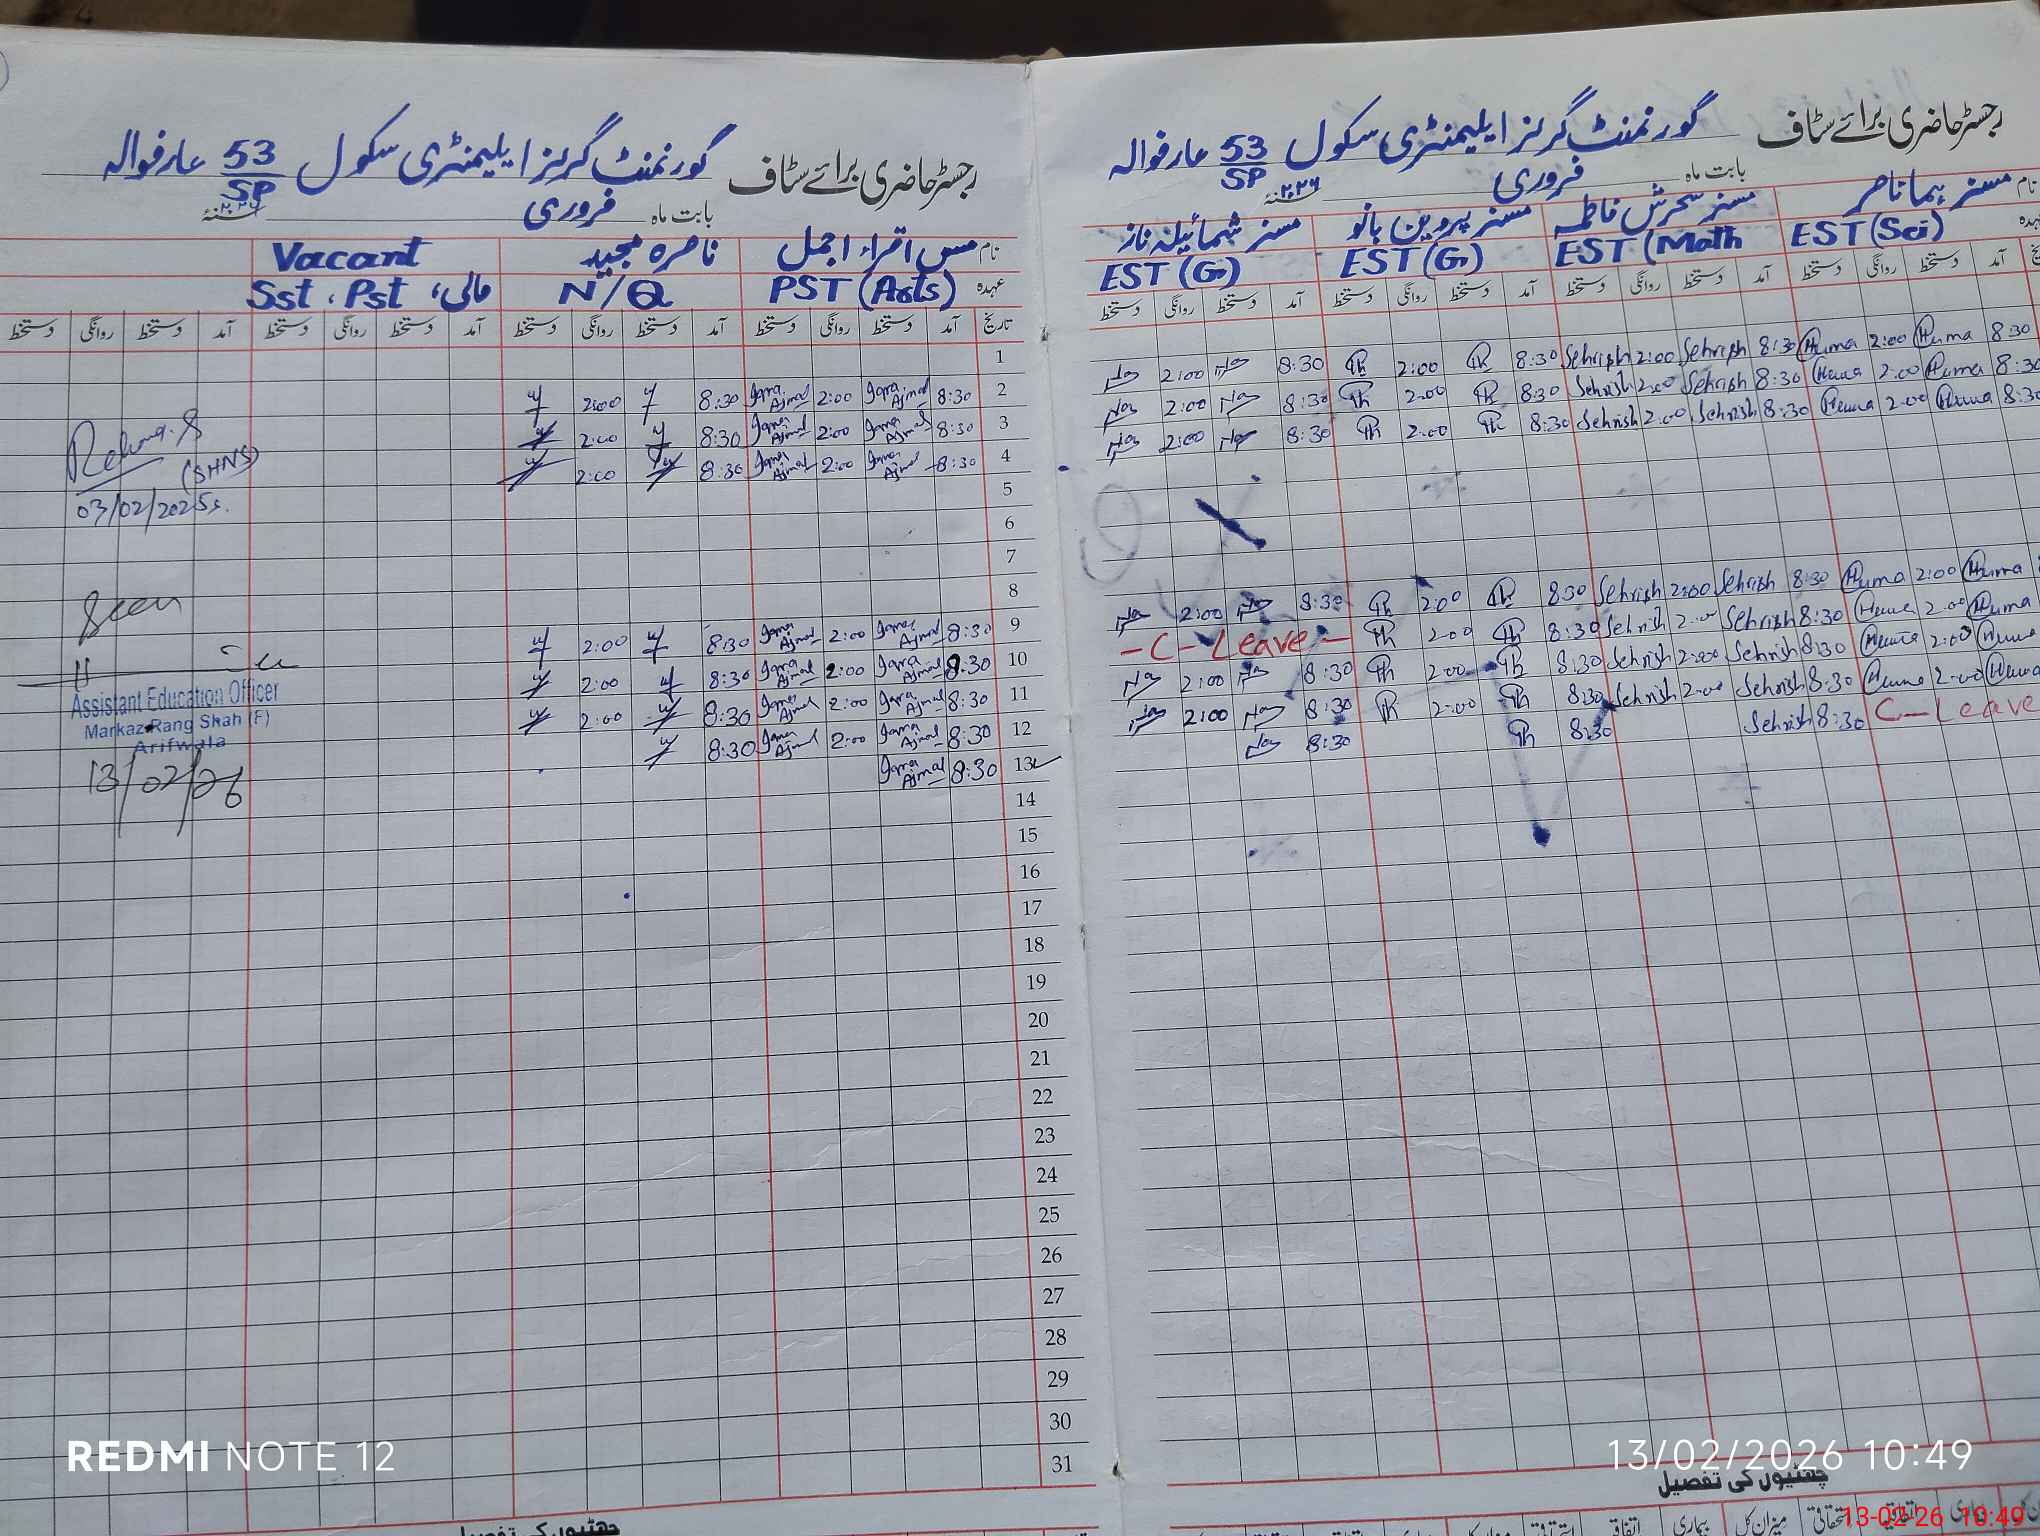 رجسٹر حاضری برائے سٹاف گورنمنٹ گرلز ایلیمنٹری سکول 53/SP عارفوالہ
بابت ماہ فروری ۲۰۲۶
نام مس اقراء اجمل ناصرہ مجید Vacant
عہدہ PST (Arts) N/Q Sst، Pst، مالی
تاریخ آمد دستخط روانگی دستخط آمد دستخط روانگی دستخط آمد دستخط روانگی دستخط آمد دستخط روانگی دستخط
1
2 8:30 Iqra Ajmal 2:00 Iqra Ajmal 8:30 2:00
3 8:30 Iqra Ajmal 2:00 Iqra Ajmal 8:30 2:00
4 8:30 Iqra Ajmal 2:00 Iqra Ajmal 8:30 2:00
5
6
7
8
9 8:30 Iqra Ajmal 2:00 Iqra Ajmal 8:30 2:00
10 8:30 Iqra Ajmal 2:00 Iqra Ajmal 8:30 2:00
11 8:30 Iqra Ajmal 2:00 Iqra Ajmal 8:30 2:00
12 8:30 Iqra Ajmal 2:00 Iqra Ajmal 8:30
13 8:30 Iqra Ajmal
14
15
16
17
18
19
20
21
22
23
24
25
26
27
28
29
30
31
(SHNS)
03/02/2025
Seen
Assistant Education Officer
Markaz Rang Shah (F)
Arifwala
13/02/26
چھٹیوں کی تفصیل
رجسٹر حاضری برائے سٹاف گورنمنٹ گرلز ایلیمنٹری سکول 53/SP عارفوالہ
بابت ماہ فروری ۲۰۲۶
نام مسز ہما ناصر مسز سحرش فاطمہ مسز پروین بانو مسز شمائیلہ ناز
EST (Sci) EST (Math EST (G) EST (G)
آمد دستخط روانگی دستخط آمد دستخط روانگی دستخط آمد دستخط روانگی دستخط آمد دستخط روانگی دستخط
8:30 Huma 2:00 Huma 8:30 Sehrish 2:00 Sehrish 8:30 2:00 8:30 2:00
8:30 Huma 2:00 Huma 8:30 Sehrish 2:00 Sehrish 8:30 2:00 8:30 2:00
8:30 Huma 2:00 Huma 8:30 Sehrish 2:00 Sehrish 8:30 2:00 8:30 2:00
Huma 2:00 Huma 8:30 Sehrish 2:00 Sehrish 8:30 2:00 8:30 2:00
Huma 2:00 Huma 8:30 Sehrish 2:00 Sehrish 8:30 2:00 - C - Leave -
Huma 2:00 Huma 8:30 Sehrish 2:00 Sehrish 8:30 2:00 8:30 2:00
Huma 2:00 Huma 8:30 Sehrish 2:00 Sehrish 8:30 2:00 8:30 2:00
C - Leave 8:30 Sehrish 8:30 8:30
چھٹیوں کی تفصیل
بیماری اتفاقیہ استحقاقی میزان کل بیماری اتفاقیہ
REDMI NOTE 12
13/02/2026 10:49
13-02-26 10:49